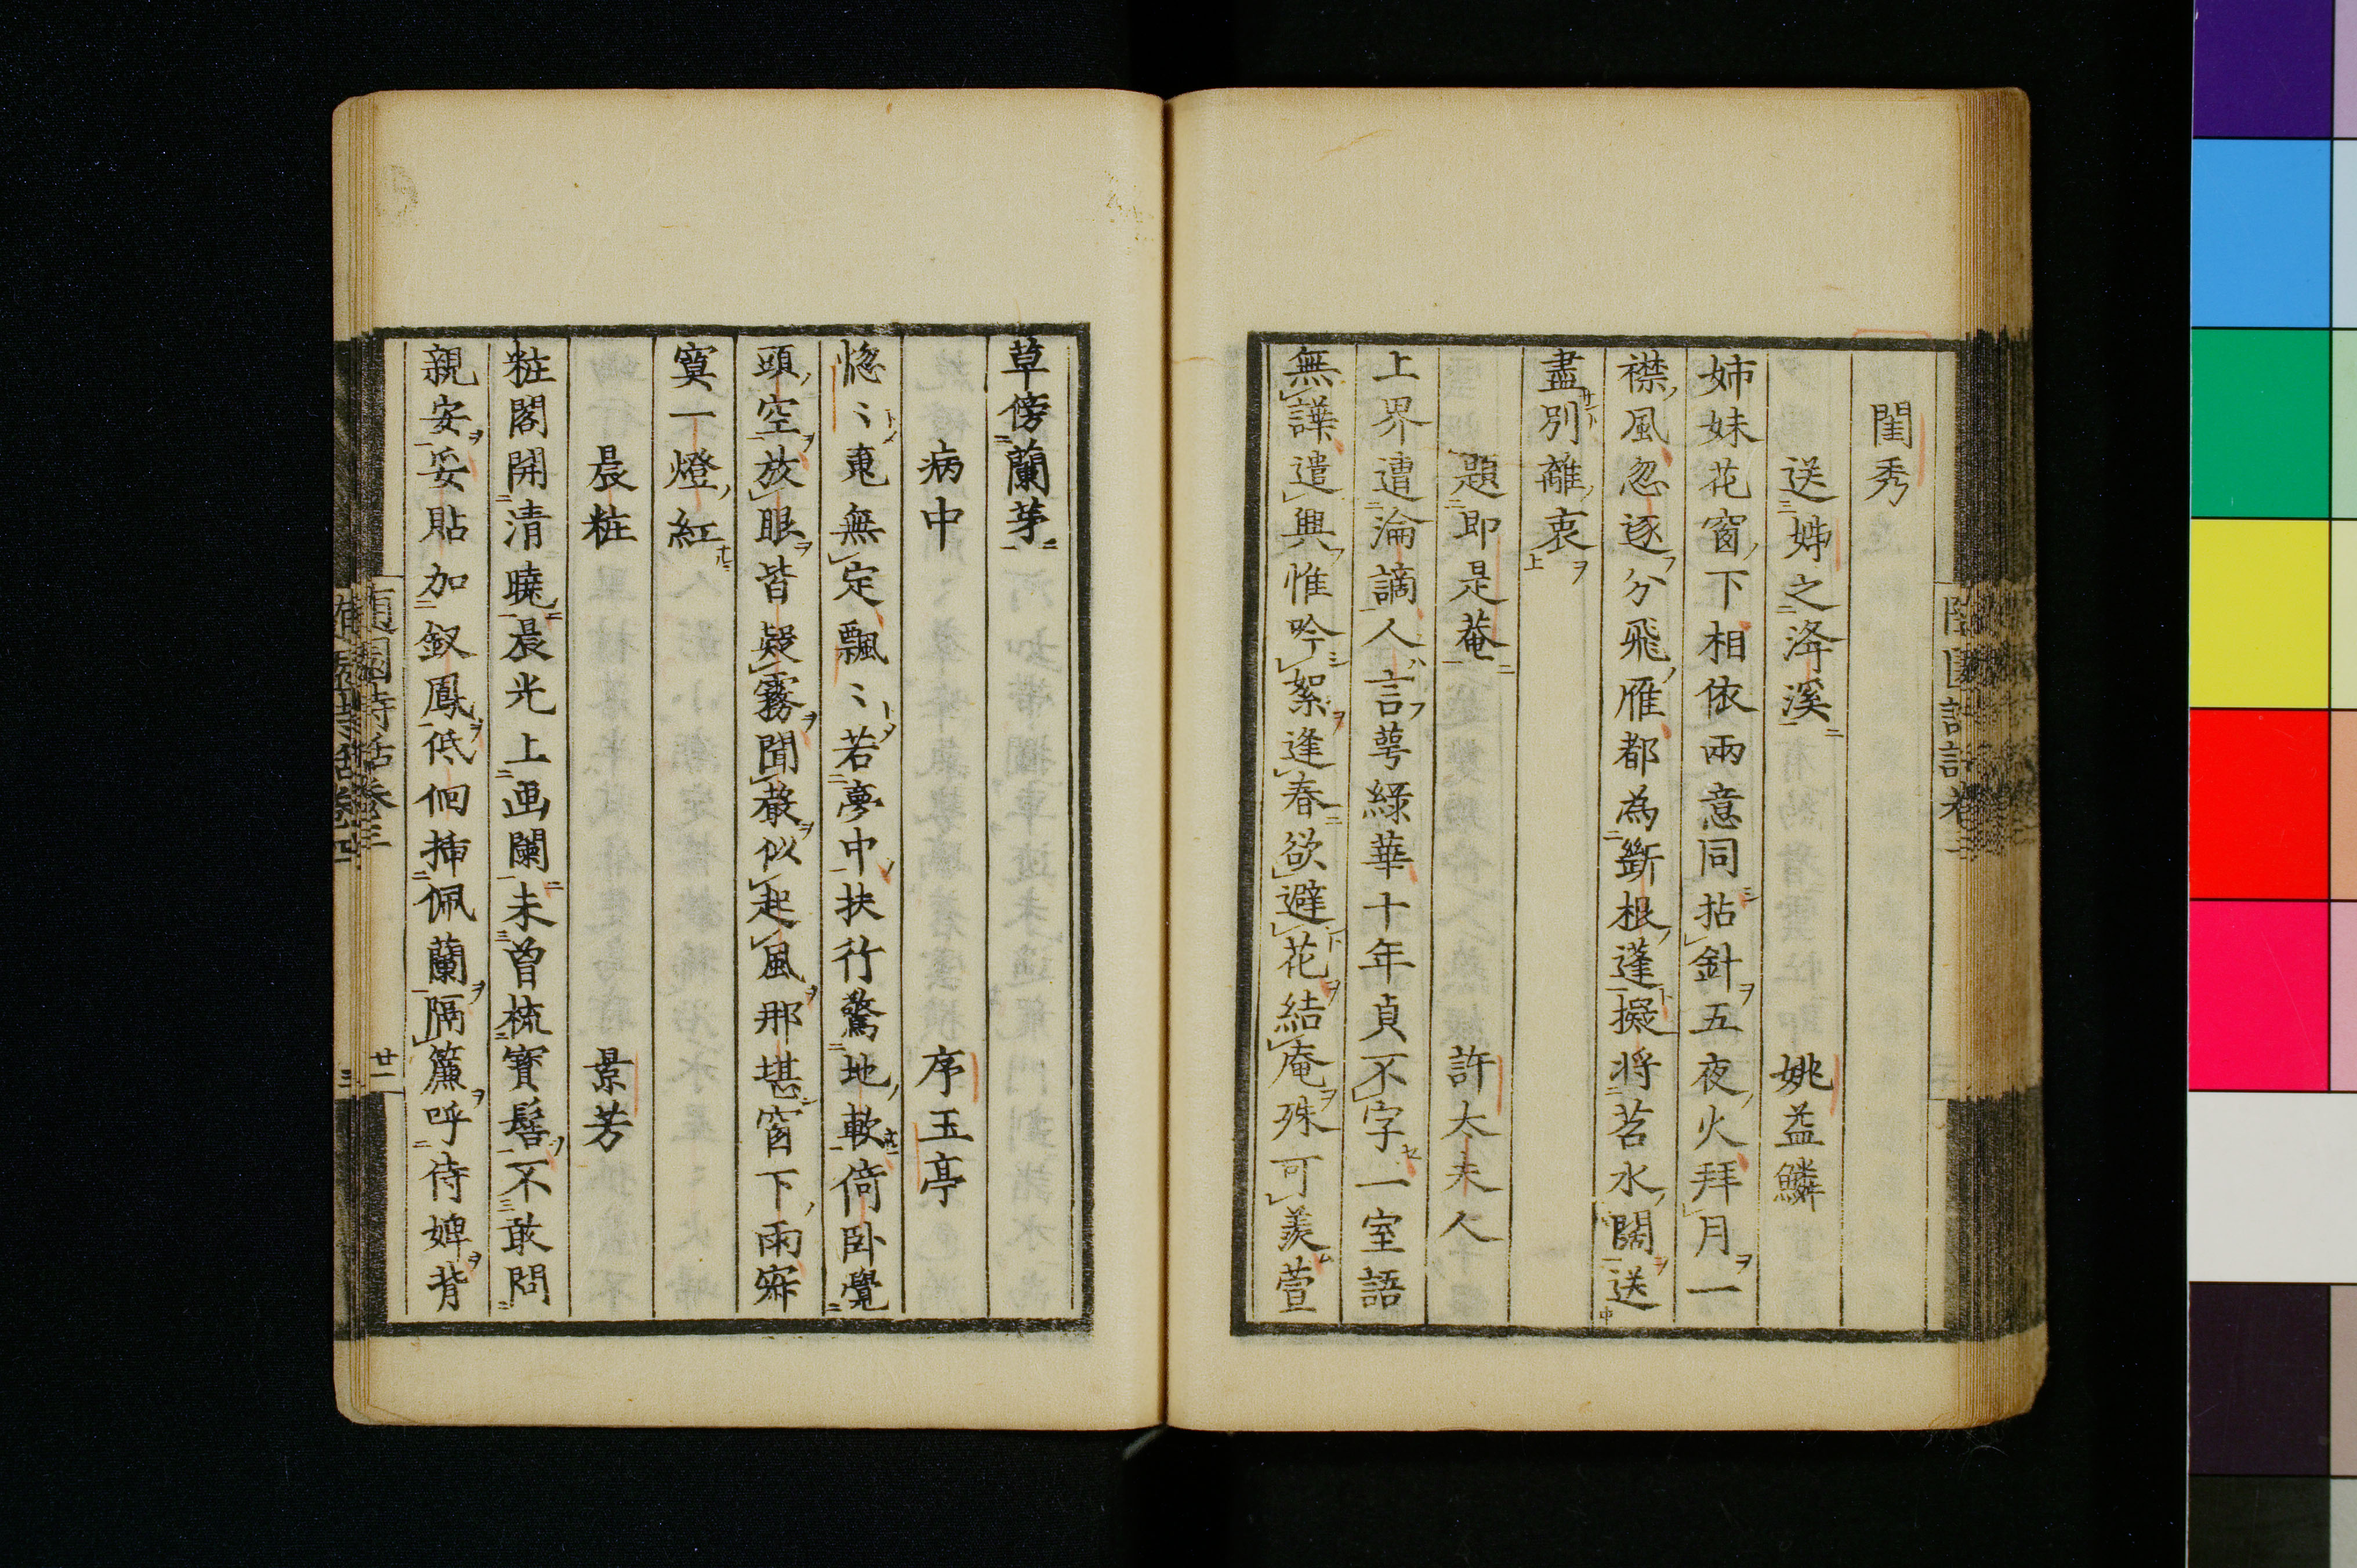 閨秀
送姊之洚溪 姚益鱗
姉妹花窗下相依兩意同拈針五夜火拜月一
襟風忽逐分飛雁都為斷根蓬擬將苕水闊送
盡別離衷
題即是菴 許太夫人
上界遭淪謫人言萼綠華十年貞不字一室語
無譁遣興惟吟絮逢春欲避花結庵殊可羨萱
草傍蘭芽
病中 序玉亭
惚〻寬無定飄〻若夢中扶行驚地軟倚卧覺
頭空放眼皆疑霧聞聲似起風那堪窗下雨寂
寞一燈紅
晨粧 景芳
粧閣開清曉晨光上画闌未曾梳寶髻不敢問
親安妥貼加釵鳳低徊插佩蘭隔簾呼侍婢背
隨園詩話卷三
廿一